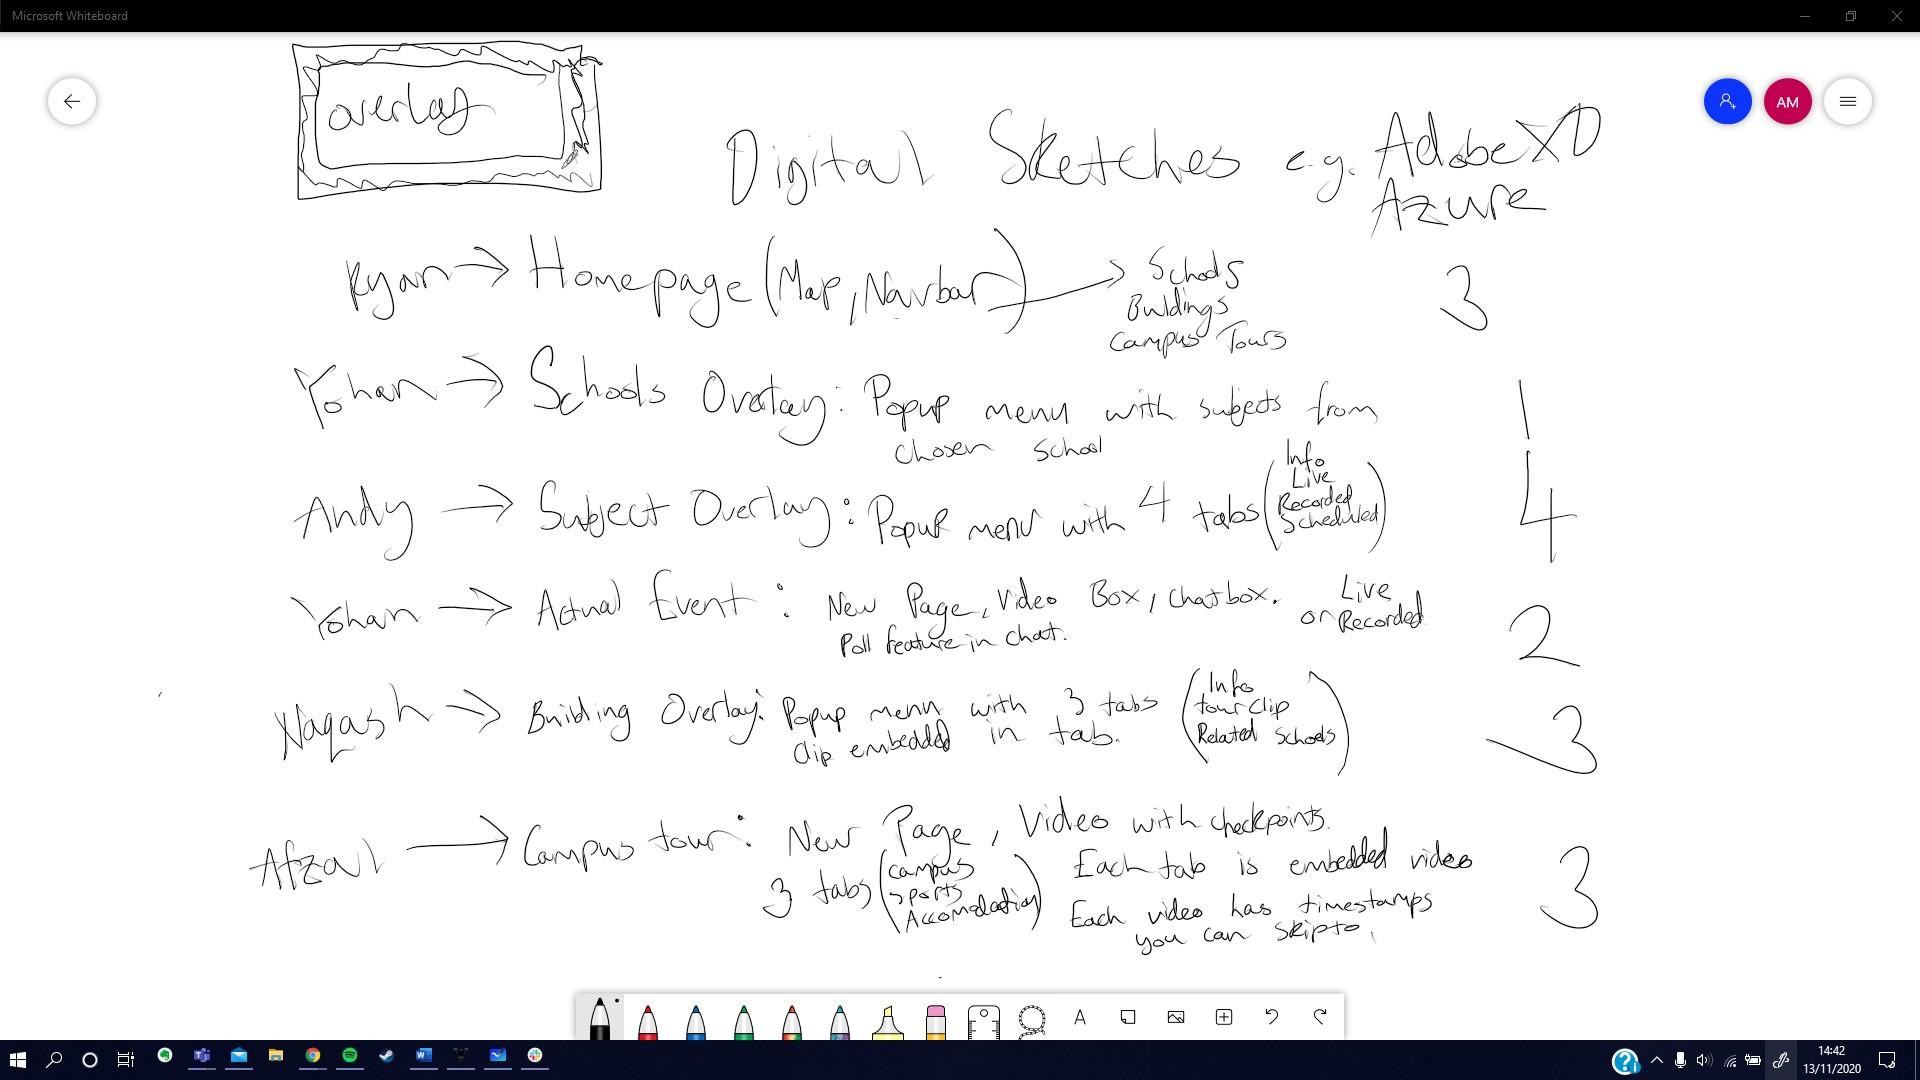 Microsoft Whiteboard
overlay
AM
Digital Sketches e.g. Adobe XD
Azure
Ryan → Homepage (Map, Navbar) → Schools
Buildings
Campus Tours
3
Yohan → Schools Overlay: Popup menu with subjects from
chosen school
1
Andy → Subject Overlay: Popup menu with 4 tabs (Info
Live
Recorded
Scheduled)
4
Yohan → Actual Event: New Page, Video Box, Chatbox. Live
or Recorded
Poll feature in chat.
2
Naqash → Building Overlay: Popup menu with 3 tabs (Info
tour clip
Related Schools)
Clip embedded in tab.
3
Afzal → Campus tour: New Page, Video with checkpoints.
3 tabs (campus
sports
Accomodation)
Each tab is embedded video
Each video has timestamps
you can skip to.
3
A
14:42
13/11/2020